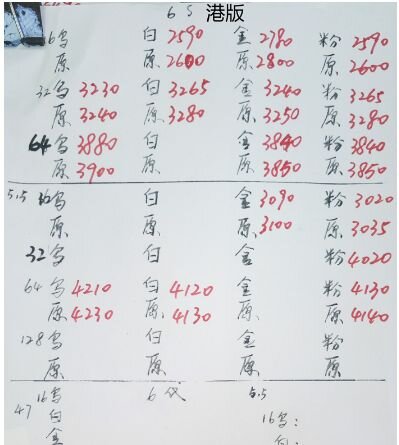 6 S 港版
16鸟 白2590 金2780 粉2590
原 原2600 原2800 原2600
32鸟3230 白3265 金3240 粉3265
原3240 原3280 原3250 原3280
64鸟3880 白 金3840 粉3840
原3900 原 原3850 原3850
5.5 16鸟 白 金3090 粉3020
原 原 原3100 原3035
32鸟 白 金 粉4020
64鸟4210 白4120 金 粉4130
原4230 原4130 原 原4140
128鸟 白 金 粉
原 原 原 原
16鸟 6代 5.5
47 白 16鸟:
金 白: